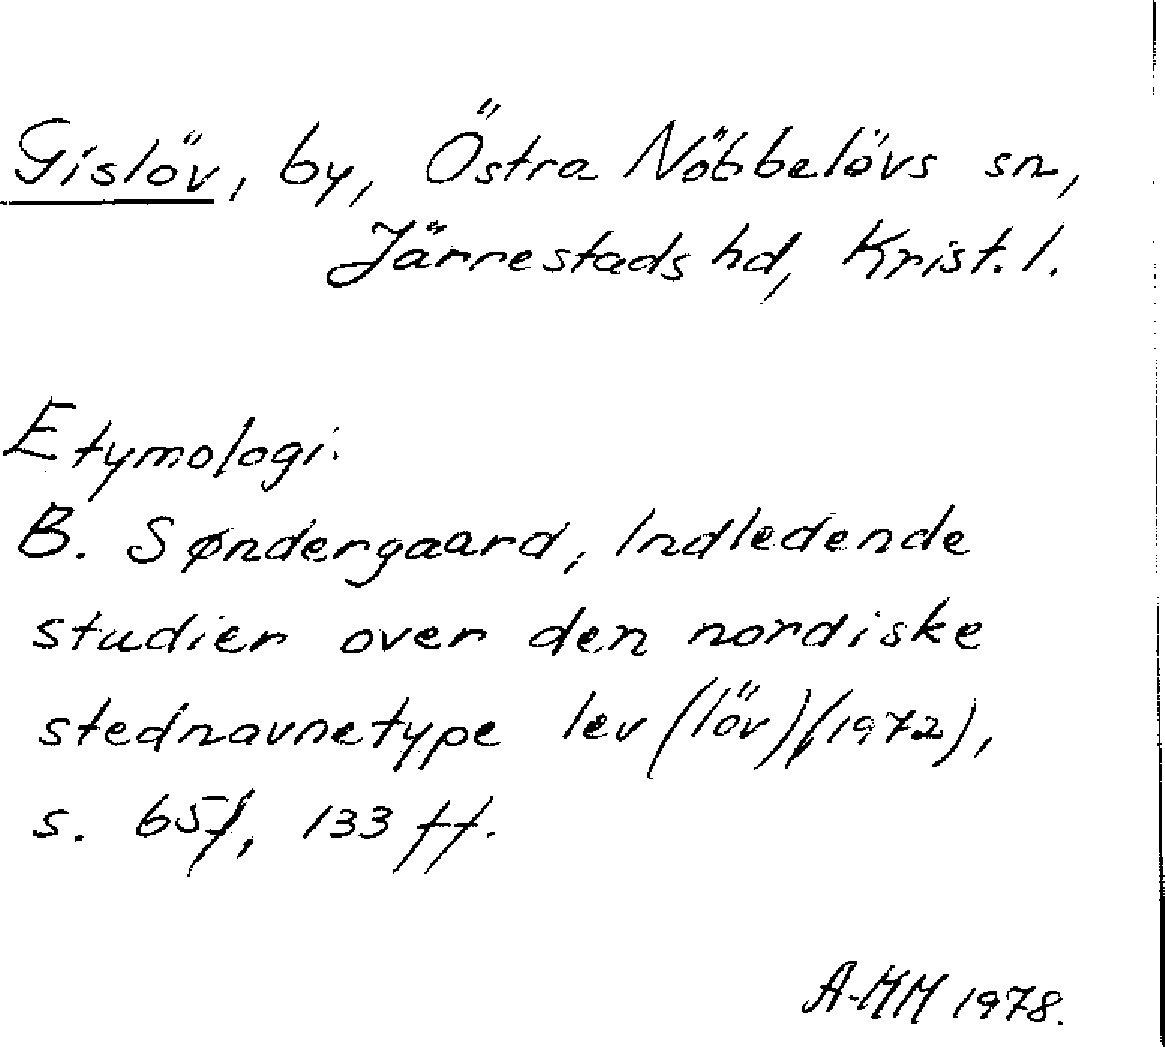 Gislöv, by, Östra Nöbbelövs sn,
Järrestads hd, Krist. l.
Etymologi:
B. Søndergaard, Indledende
studier over den nordiske
stednavnetype lev (löv) (1972),
s. 65f, 133 ff.
A-MM 1978.